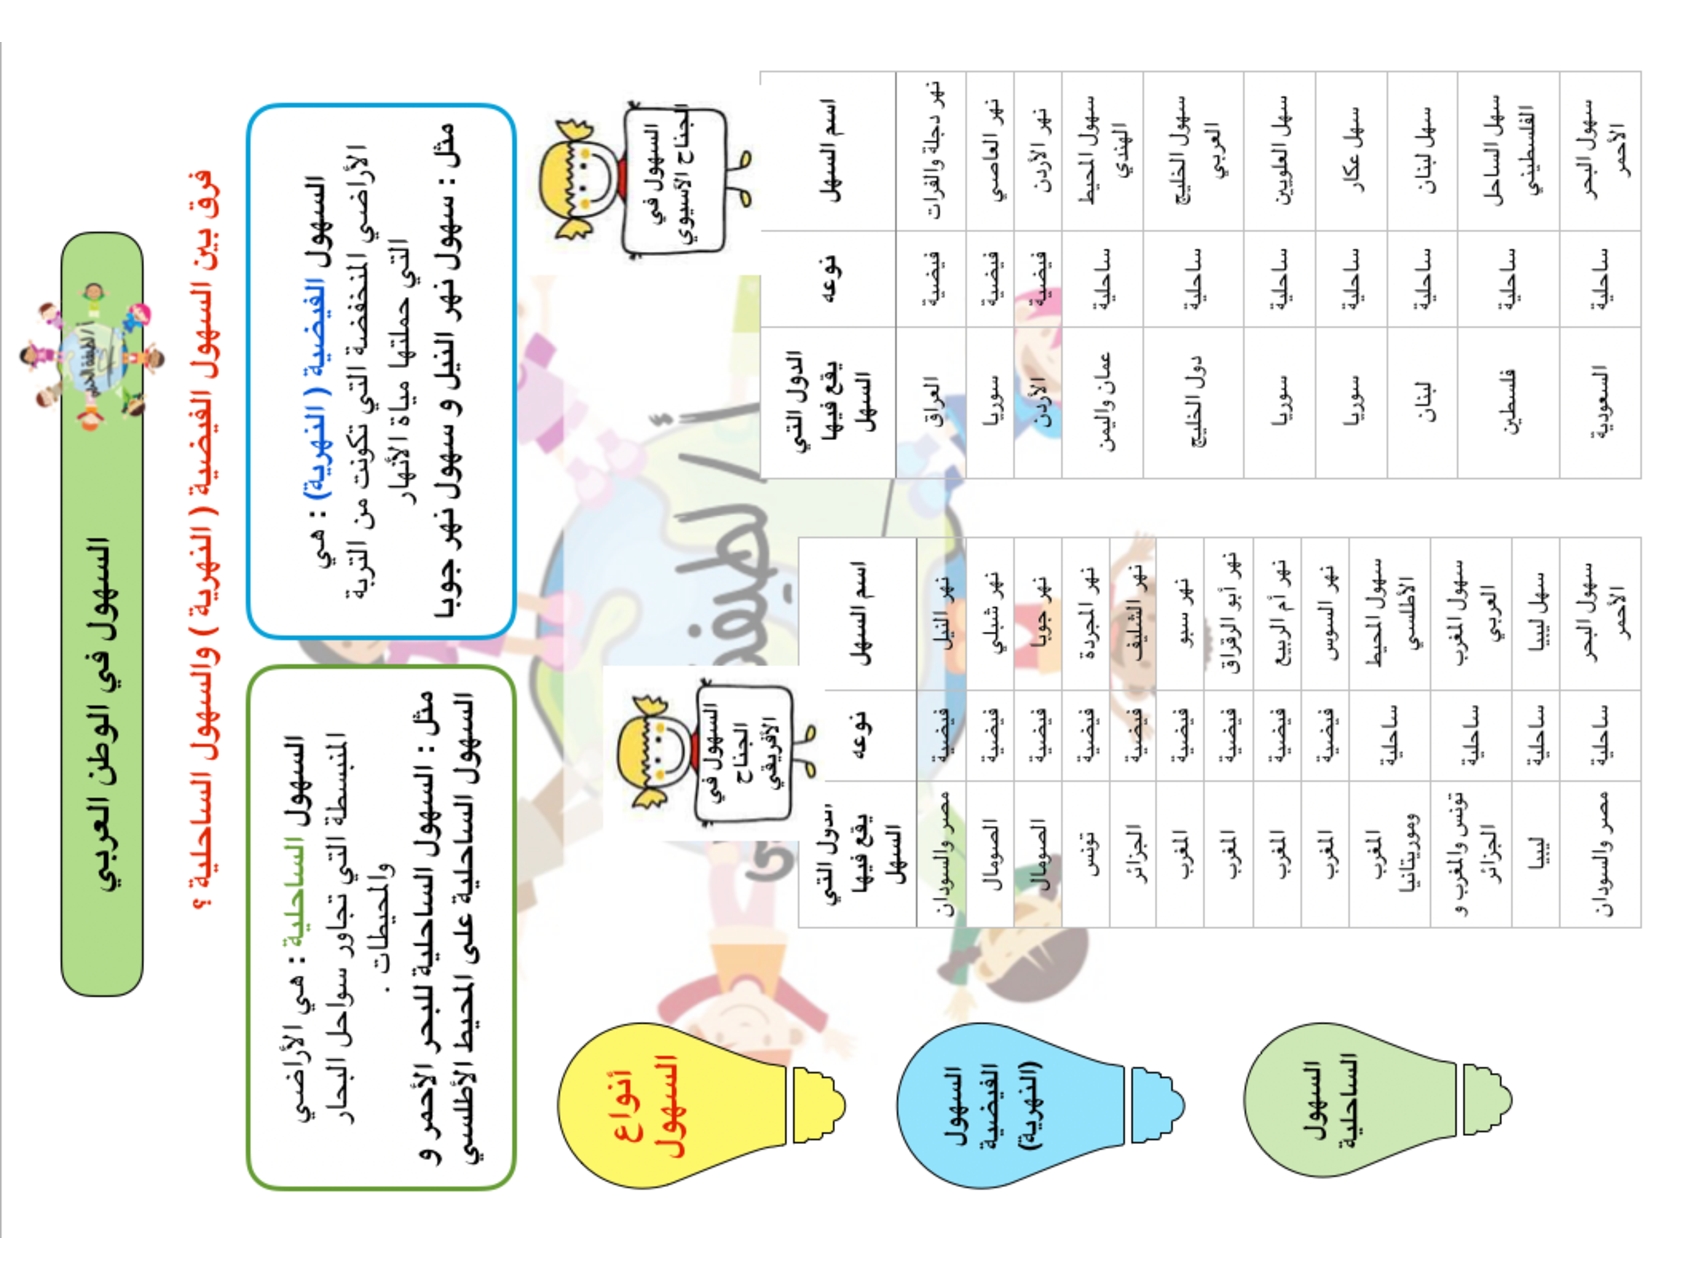 السهول في الوطن العربي
فرق بين السهول الفيضية ( النهرية ) والسهول الساحلية ؟
السهول الفيضية ( النهرية) : هي
الأراضي المنخفضة التي تكونت من التربة
التي حملتها مياة الأنهار
مثل : سهول نهر النيل و سهول نهر جوبا
السهول الساحلية : هي الأراضي
المنبسطة التي تجاور سواحل البحار
والمحيطات .
مثل : السهول الساحلية للبحر الأحمر و
السهول الساحلية على المحيط الأطلسي
السهول في
الجناح الآسيوي
اسم السهل نوعه الدول التي يقع فيها السهل
نهر دجلة والفرات فيضية العراق
نهر العاصي فيضية سوريا
نهر الأردن فيضية الأردن
سهول المحيط الهندي ساحلية عمان واليمن
سهول الخليج العربي ساحلية دول الخليج
سهل العلويين ساحلية سوريا
سهل عكار ساحلية سوريا
سهل لبنان ساحلية لبنان
سهل الساحل الفلسطيني ساحلية فلسطين
سهول البحر الأحمر ساحلية السعودية
السهول في
الجناح
الأفريقي
اسم السهل نوعه الدول التي يقع فيها السهل
نهر النيل فيضية مصر والسودان
نهر شبلي فيضية الصومال
نهر جوبا فيضية الصومال
نهر المجردة فيضية تونس
نهر الشليف فيضية الجزائر
نهر سبو فيضية المغرب
نهر أبو الرقراق فيضية المغرب
نهر أم الربيع فيضية المغرب
نهر السوس فيضية المغرب
سهول المحيط الأطلسي ساحلية المغرب وموريتانيا
سهول المغرب العربي ساحلية تونس والمغرب و الجزائر
سهل ليبيا ساحلية ليبيا
سهول البحر الأحمر ساحلية مصر والسودان
أنواع
السهول
السهول
الفيضية
(النهرية)
السهول
الساحلية